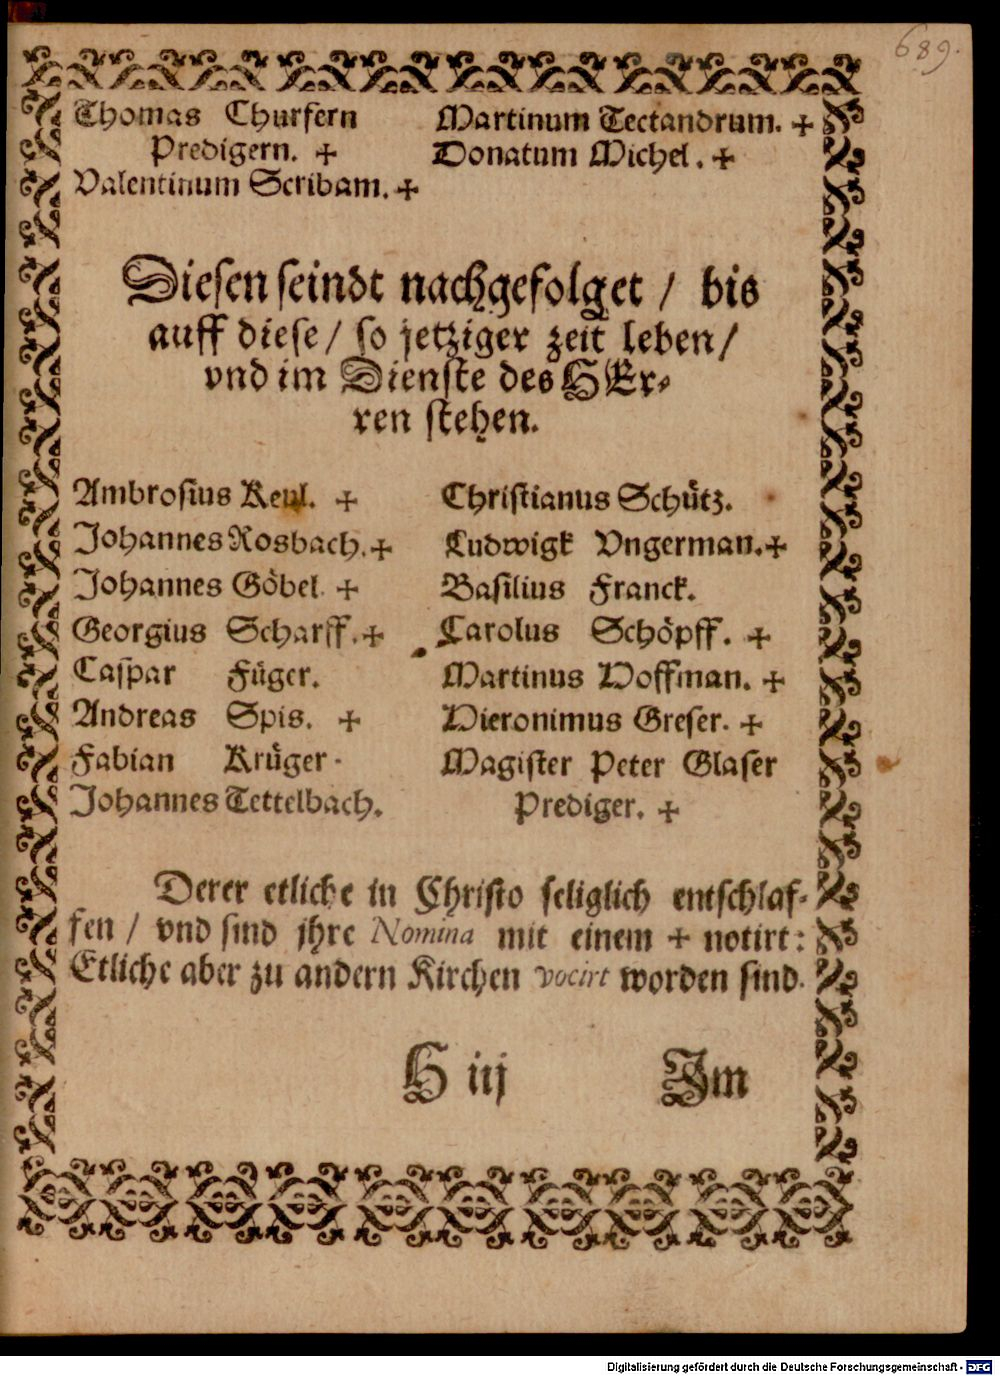 689.
Thomas Churfern
Predigern. +
Valentinum Scribam. +
Martinum Tectandrum. +
Donatum Michel. +
Diesen seindt nachgefolget / bis
auff diese / so jetziger zeit leben /
vnd im Dienste des HEr⸗
ren stehen.
Ambrosius Keul. +
Johannes Rosbach. +
Johannes Göbel. +
Georgius Scharff. +
Caspar Füger.
Andreas Spis. +
Fabian Krüger.
Johannes Tettelbach.
Christianus Schütz.
Ludwigk Vngerman. +
Basilius Franck.
Carolus Schöpff. +
Martinus Hoffman. +
Hieronimus Greser. +
Magister Peter Glaser
Prediger. +
Derer etliche in Christo seliglich entschlaf⸗
fen / vnd sind jhre Nomina mit einem + notirt:
Etliche aber zu andern Kirchen vocirt worden sind.
H iij Im
Digitalisierung gefördert durch die Deutsche Forschungsgemeinschaft - DFG